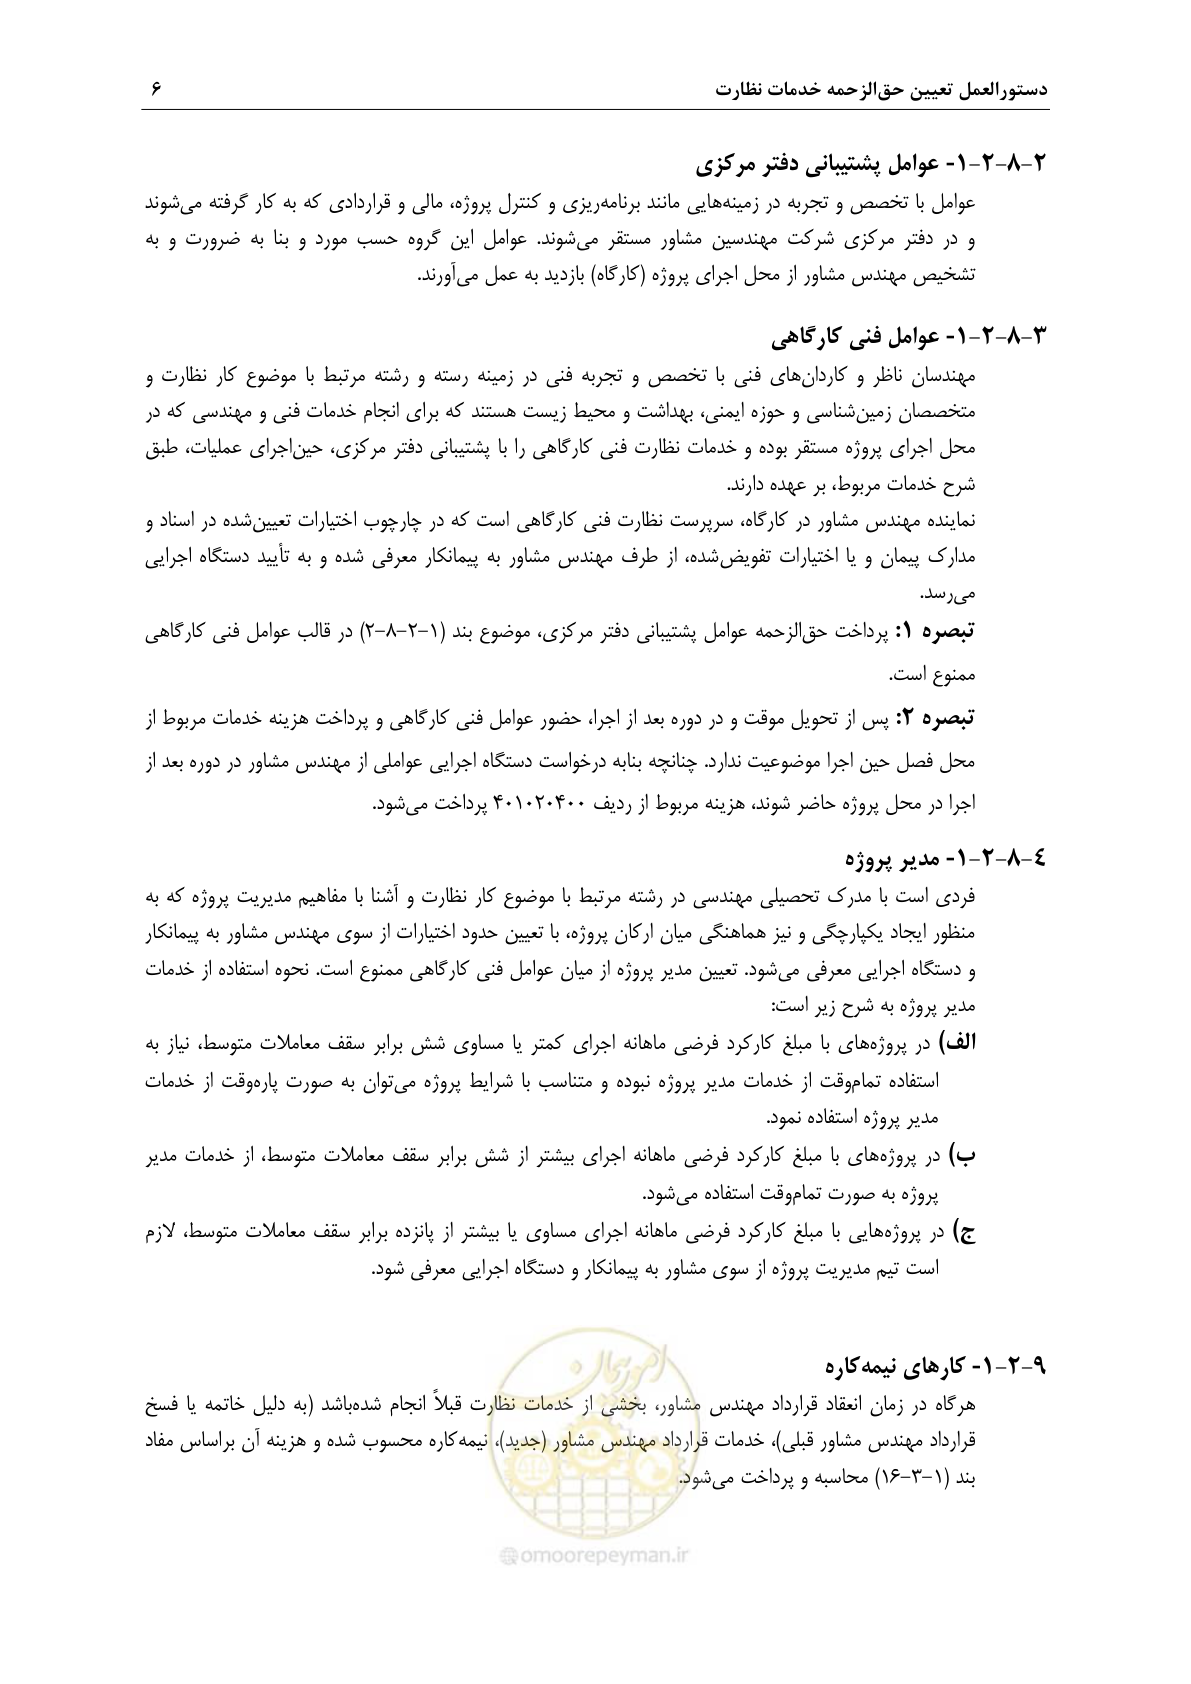 دستورالعمل تعیین حق‌الزحمه خدمات نظارت ۶
۱-۲-۸-۲- عوامل پشتیبانی دفتر مرکزی
عوامل با تخصص و تجربه در زمینه‌هایی مانند برنامه‌ریزی و کنترل پروژه، مالی و قراردادی که به کار گرفته می‌شوند
و در دفتر مرکزی شرکت مهندسین مشاور مستقر می‌شوند. عوامل این گروه حسب مورد و بنا به ضرورت و به
تشخیص مهندس مشاور از محل اجرای پروژه (کارگاه) بازدید به عمل می‌آورند.
۱-۲-۸-۳- عوامل فنی کارگاهی
مهندسان ناظر و کاردان‌های فنی با تخصص و تجربه فنی در زمینه رسته و رشته مرتبط با موضوع کار نظارت و
متخصصان زمین‌شناسی و حوزه ایمنی، بهداشت و محیط زیست هستند که برای انجام خدمات فنی و مهندسی که در
محل اجرای پروژه مستقر بوده و خدمات نظارت فنی کارگاهی را با پشتیبانی دفتر مرکزی، حین‌اجرای عملیات، طبق
شرح خدمات مربوط، بر عهده دارند.
نماینده مهندس مشاور در کارگاه، سرپرست نظارت فنی کارگاهی است که در چارچوب اختیارات تعیین‌شده در اسناد و
مدارک پیمان و یا اختیارات تفویض‌شده، از طرف مهندس مشاور به پیمانکار معرفی شده و به تأیید دستگاه اجرایی
می‌رسد.
تبصره ۱: پرداخت حق‌الزحمه عوامل پشتیبانی دفتر مرکزی، موضوع بند (۱-۲-۸-۲) در قالب عوامل فنی کارگاهی
ممنوع است.
تبصره ۲: پس از تحویل موقت و در دوره بعد از اجرا، حضور عوامل فنی کارگاهی و پرداخت هزینه خدمات مربوط از
محل فصل حین اجرا موضوعیت ندارد. چنانچه بنابه درخواست دستگاه اجرایی عواملی از مهندس مشاور در دوره بعد از
اجرا در محل پروژه حاضر شوند، هزینه مربوط از ردیف ۴۰۱۰۲۰۴۰۰ پرداخت می‌شود.
۱-۲-۸-۴- مدیر پروژه
فردی است با مدرک تحصیلی مهندسی در رشته مرتبط با موضوع کار نظارت و آشنا با مفاهیم مدیریت پروژه که به
منظور ایجاد یکپارچگی و نیز هماهنگی میان ارکان پروژه، با تعیین حدود اختیارات از سوی مهندس مشاور به پیمانکار
و دستگاه اجرایی معرفی می‌شود. تعیین مدیر پروژه از میان عوامل فنی کارگاهی ممنوع است. نحوه استفاده از خدمات
مدیر پروژه به شرح زیر است:
الف) در پروژه‌های با مبلغ کارکرد فرضی ماهانه اجرای کمتر یا مساوی شش برابر سقف معاملات متوسط، نیاز به
استفاده تمام‌وقت از خدمات مدیر پروژه نبوده و متناسب با شرایط پروژه می‌توان به صورت پاره‌وقت از خدمات
مدیر پروژه استفاده نمود.
ب) در پروژه‌های با مبلغ کارکرد فرضی ماهانه اجرای بیشتر از شش برابر سقف معاملات متوسط، از خدمات مدیر
پروژه به صورت تمام‌وقت استفاده می‌شود.
ج) در پروژه‌هایی با مبلغ کارکرد فرضی ماهانه اجرای مساوی یا بیشتر از پانزده برابر سقف معاملات متوسط، لازم
است تیم مدیریت پروژه از سوی مشاور به پیمانکار و دستگاه اجرایی معرفی شود.
۱-۲-۹- کارهای نیمه‌کاره
هرگاه در زمان انعقاد قرارداد مهندس مشاور، بخشی از خدمات نظارت قبلاً انجام شده‌باشد (به دلیل خاتمه یا فسخ
قرارداد مهندس مشاور قبلی)، خدمات قرارداد مهندس مشاور (جدید)، نیمه‌کاره محسوب شده و هزینه آن براساس مفاد
بند (۱-۳-۱۶) محاسبه و پرداخت می‌شود.
امور پیمان
@omoorepeyman.ir